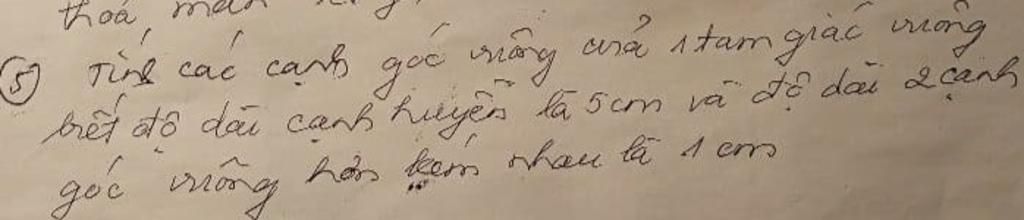 thoả mãn
⑤ Tính các cạnh góc vuông của 1 tam giác vuông
biết độ dài cạnh huyền là 5 cm và độ dài 2 cạnh
góc vuông hơn kém nhau là 1 cm